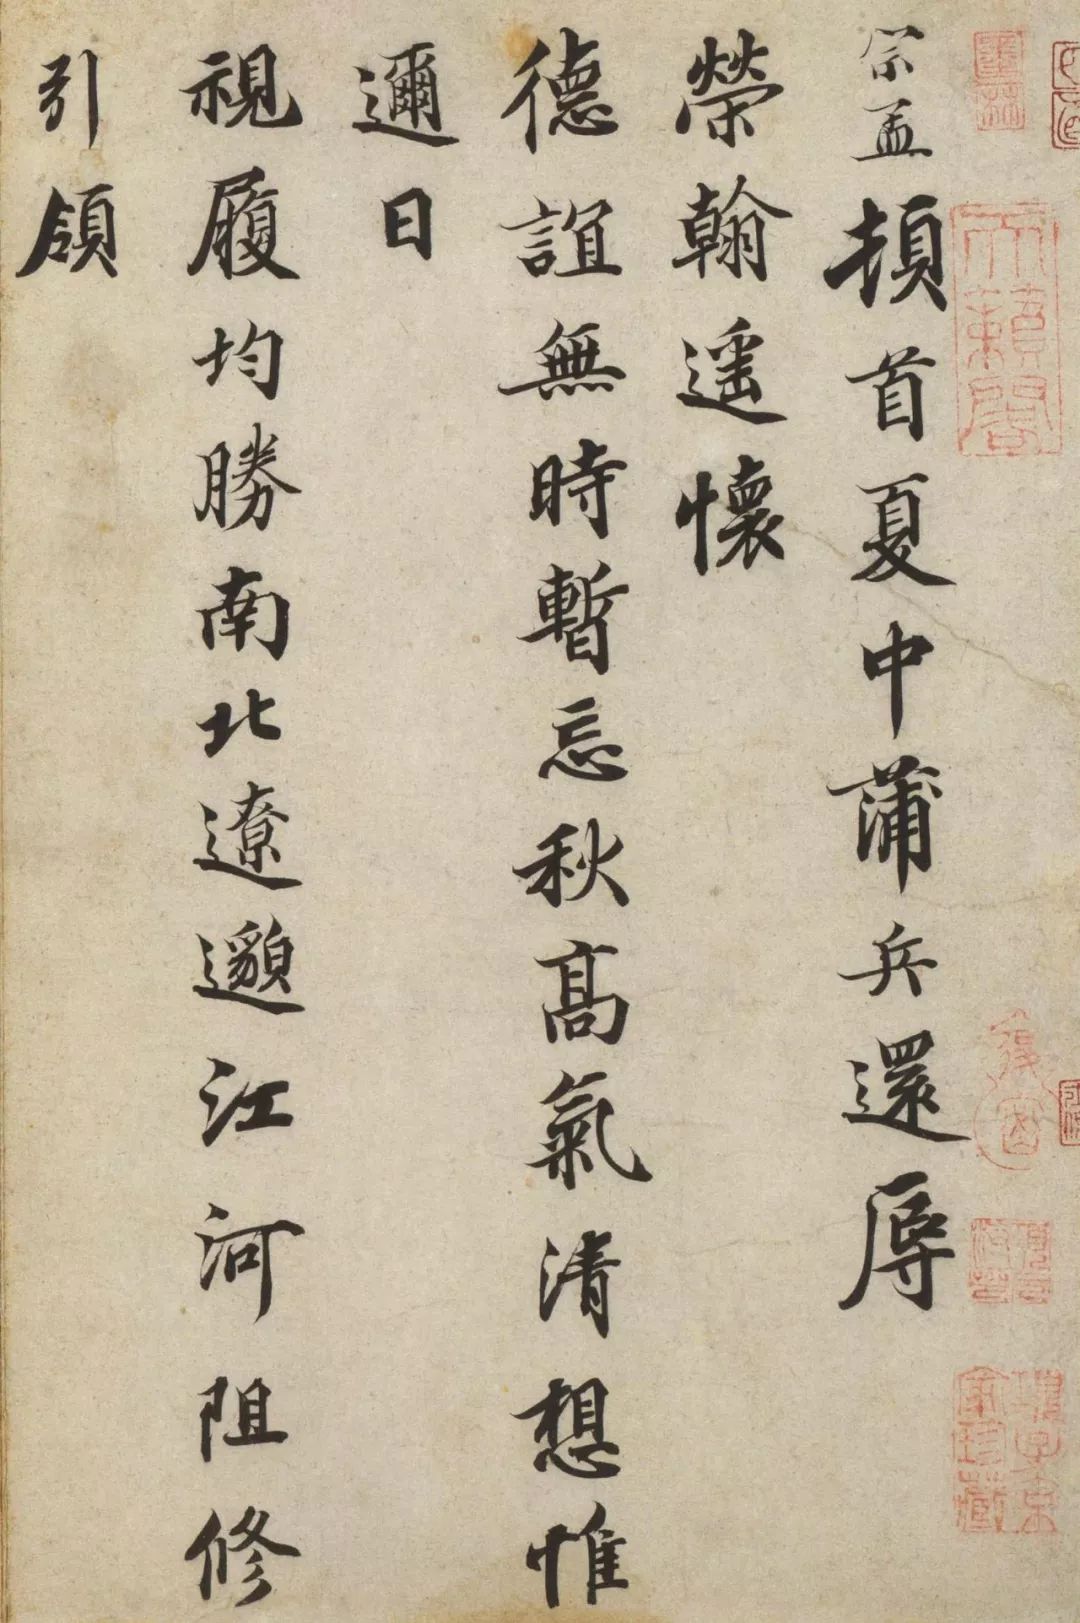 宗孟頓首夏中蒲兵還辱
榮翰遥懷
德誼無時暫忘秋髙氣清想惟
邇日
視履均勝南北遼邈江河阻修
引領
天籟閣